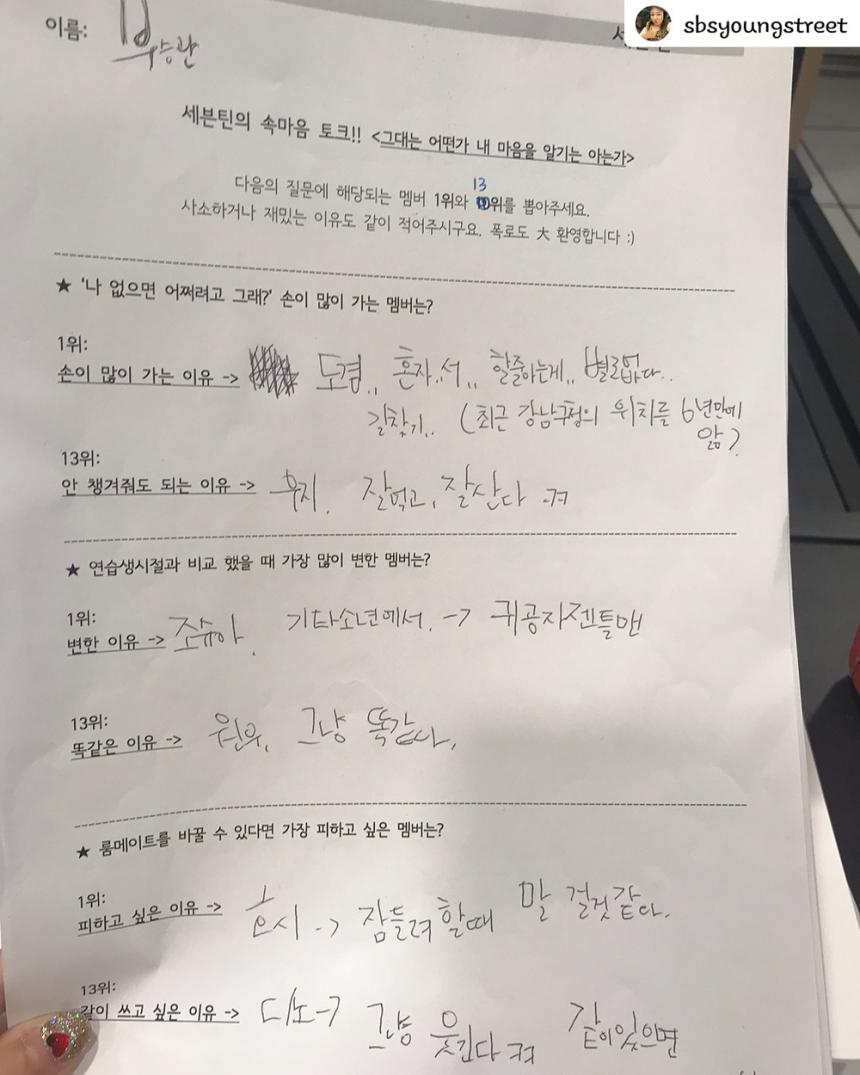 sbsyoungstreet
이름: 부승관
세븐틴의 속마음 토크!! <그대는 어떤가 내 마음을 알기는 아는가>
다음의 질문에 해당되는 멤버 1위와 13위를 뽑아주세요.
사소하거나 재밌는 이유도 같이 적어주시구요. 폭로도 大 환영합니다 :)
★ '나 없으면 어쩌려고 그래?' 손이 많이 가는 멤버는?
1위:
손이 많이 가는 이유 -> 도겸.. 혼자..서.. 할줄아는게.. 별로없다..
길찾기.. (최근 강남구청의 위치를 6년만에
앎?
13위:
안 챙겨줘도 되는 이유 -> 우지. 잘먹고, 잘산다 ㅋㅋ
★ 연습생시절과 비교 했을 때 가장 많이 변한 멤버는?
1위:
변한 이유 -> 조슈아. 기타소년에서. -> 귀공자젠틀맨
13위:
똑같은 이유 -> 원우. 그냥 똑같다.
★ 룸메이트를 바꿀 수 있다면 가장 피하고 싶은 멤버는?
1위:
피하고 싶은 이유 -> 호시 -> 잠들려 할때 말 걸것같다.
13위:
같이 쓰고 싶은 이유 -> 디노 -> 그냥 웃긴다 ㅋㅋ 같이있으면